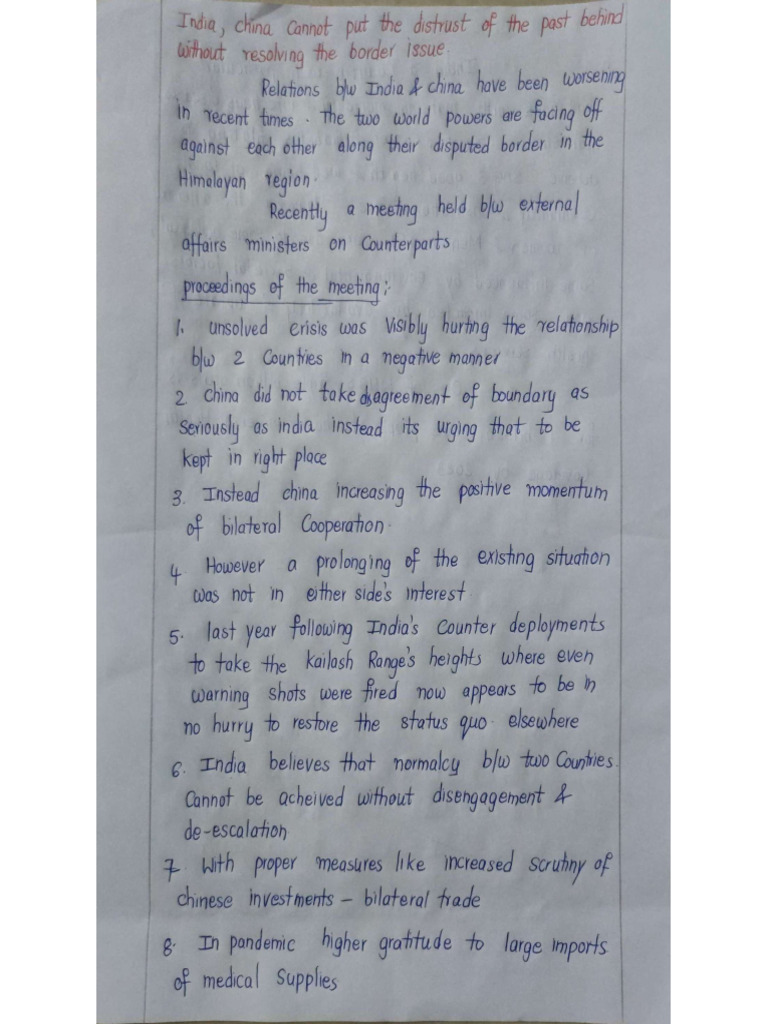 India, china cannot put the distrust of the past behind
without resolving the border issue.
Relations b/w India & china have been worsening
in recent times. The two world powers are facing off
against each other along their disputed border in the
Himalayan region.
Recently a meeting held b/w external
affairs ministers on Counterparts
proceedings of the meeting:-
1. unsolved crisis was Visibly hurting the relationship
b/w 2 Countries in a negative manner
2 China did not take disagreement of boundary as
seriously as india instead its urging that to be
kept in right place
3. Instead china increasing the positive momentum
of bilateral Cooperation.
4 However a prolonging of the existing situation
was not in either side's interest.
5. last year following India's Counter deployments
to take the Kailash Range's heights where even
warning shots were fired now appears to be in
no hurry to restore the status quo. elsewhere
6. India believes that normalcy b/w two Countries.
Cannot be acheived without disengagement &
de-escalation
7 With proper measures like increased scrutiny of
chinese investments - bilateral trade
8. In pandemic higher gratitude to large imports
of medical Supplies